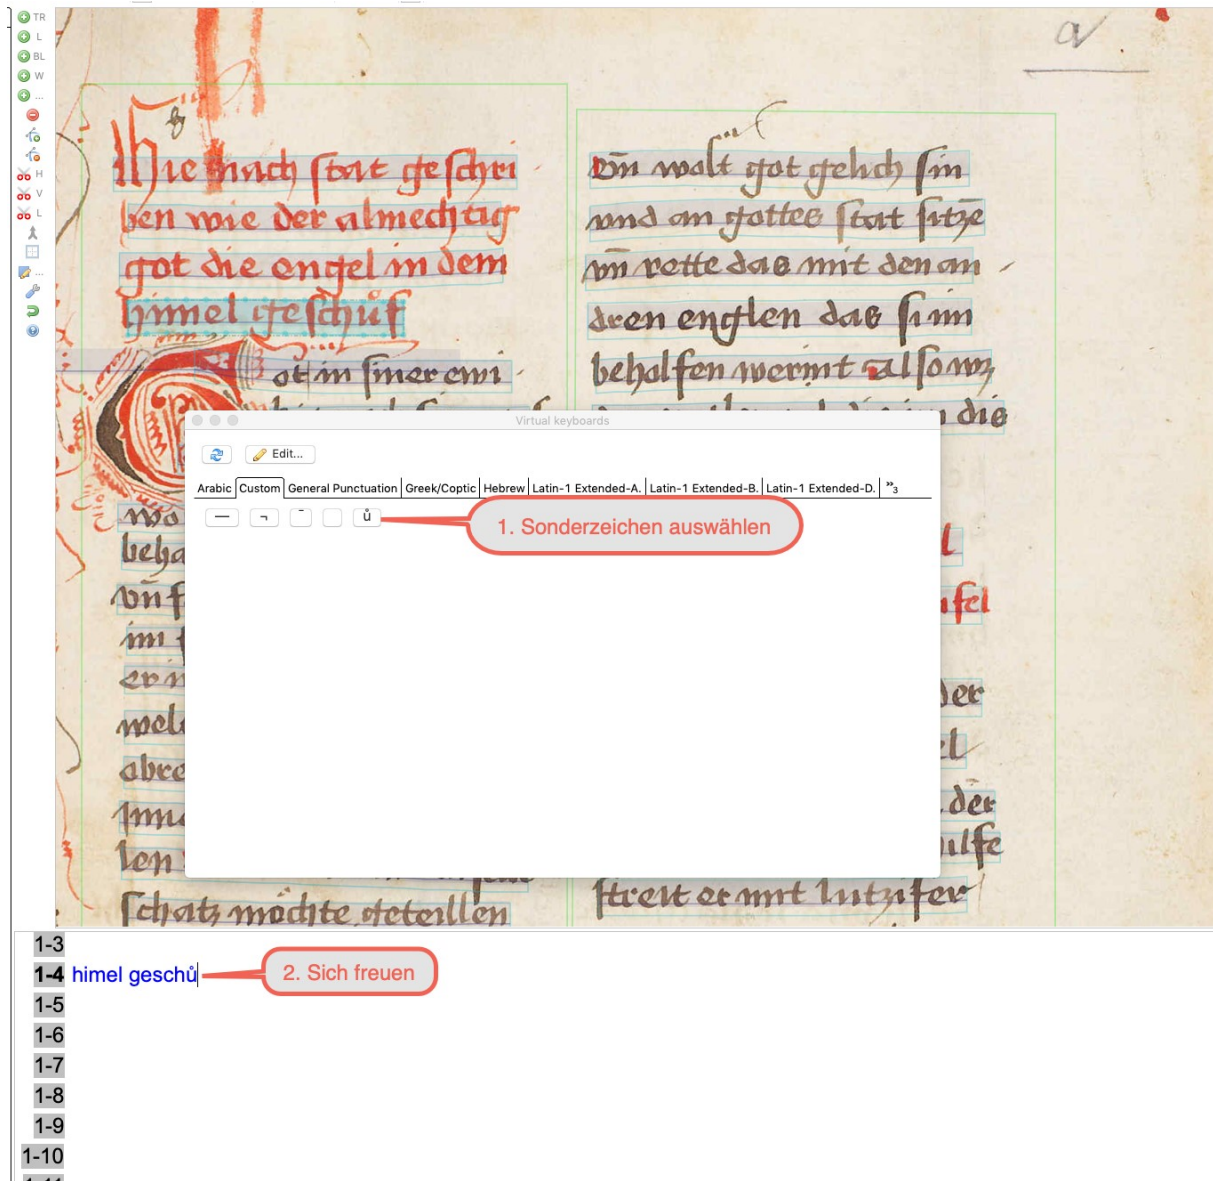 TR
L
BL
W
...
H
V
L
...
a
Hie nach stat geschri
ben wie der almechtig
got die engel in dem
himel geschůf
ot in siner ewi
wo
beha
vn̄ f
im
er
welt
obre
Inne
len
schatz möchte geteillen
vn̄ wolt got gelich sin
vnd an gottes stat sitzē
vn̄ rette das mit den an
dren englen das si im
behalfen werint also
die
l
ifel
der
el
der
ilfe
streit er mit lutzifer
Virtual keyboards
Edit...
Arabic Custom General Punctuation Greek/Coptic Hebrew Latin-1 Extended-A. Latin-1 Extended-B. Latin-1 Extended-D. »3
— ¬ ¯ ů
1. Sonderzeichen auswählen
1-3
1-4 himel geschů
2. Sich freuen
1-5
1-6
1-7
1-8
1-9
1-10
1-11